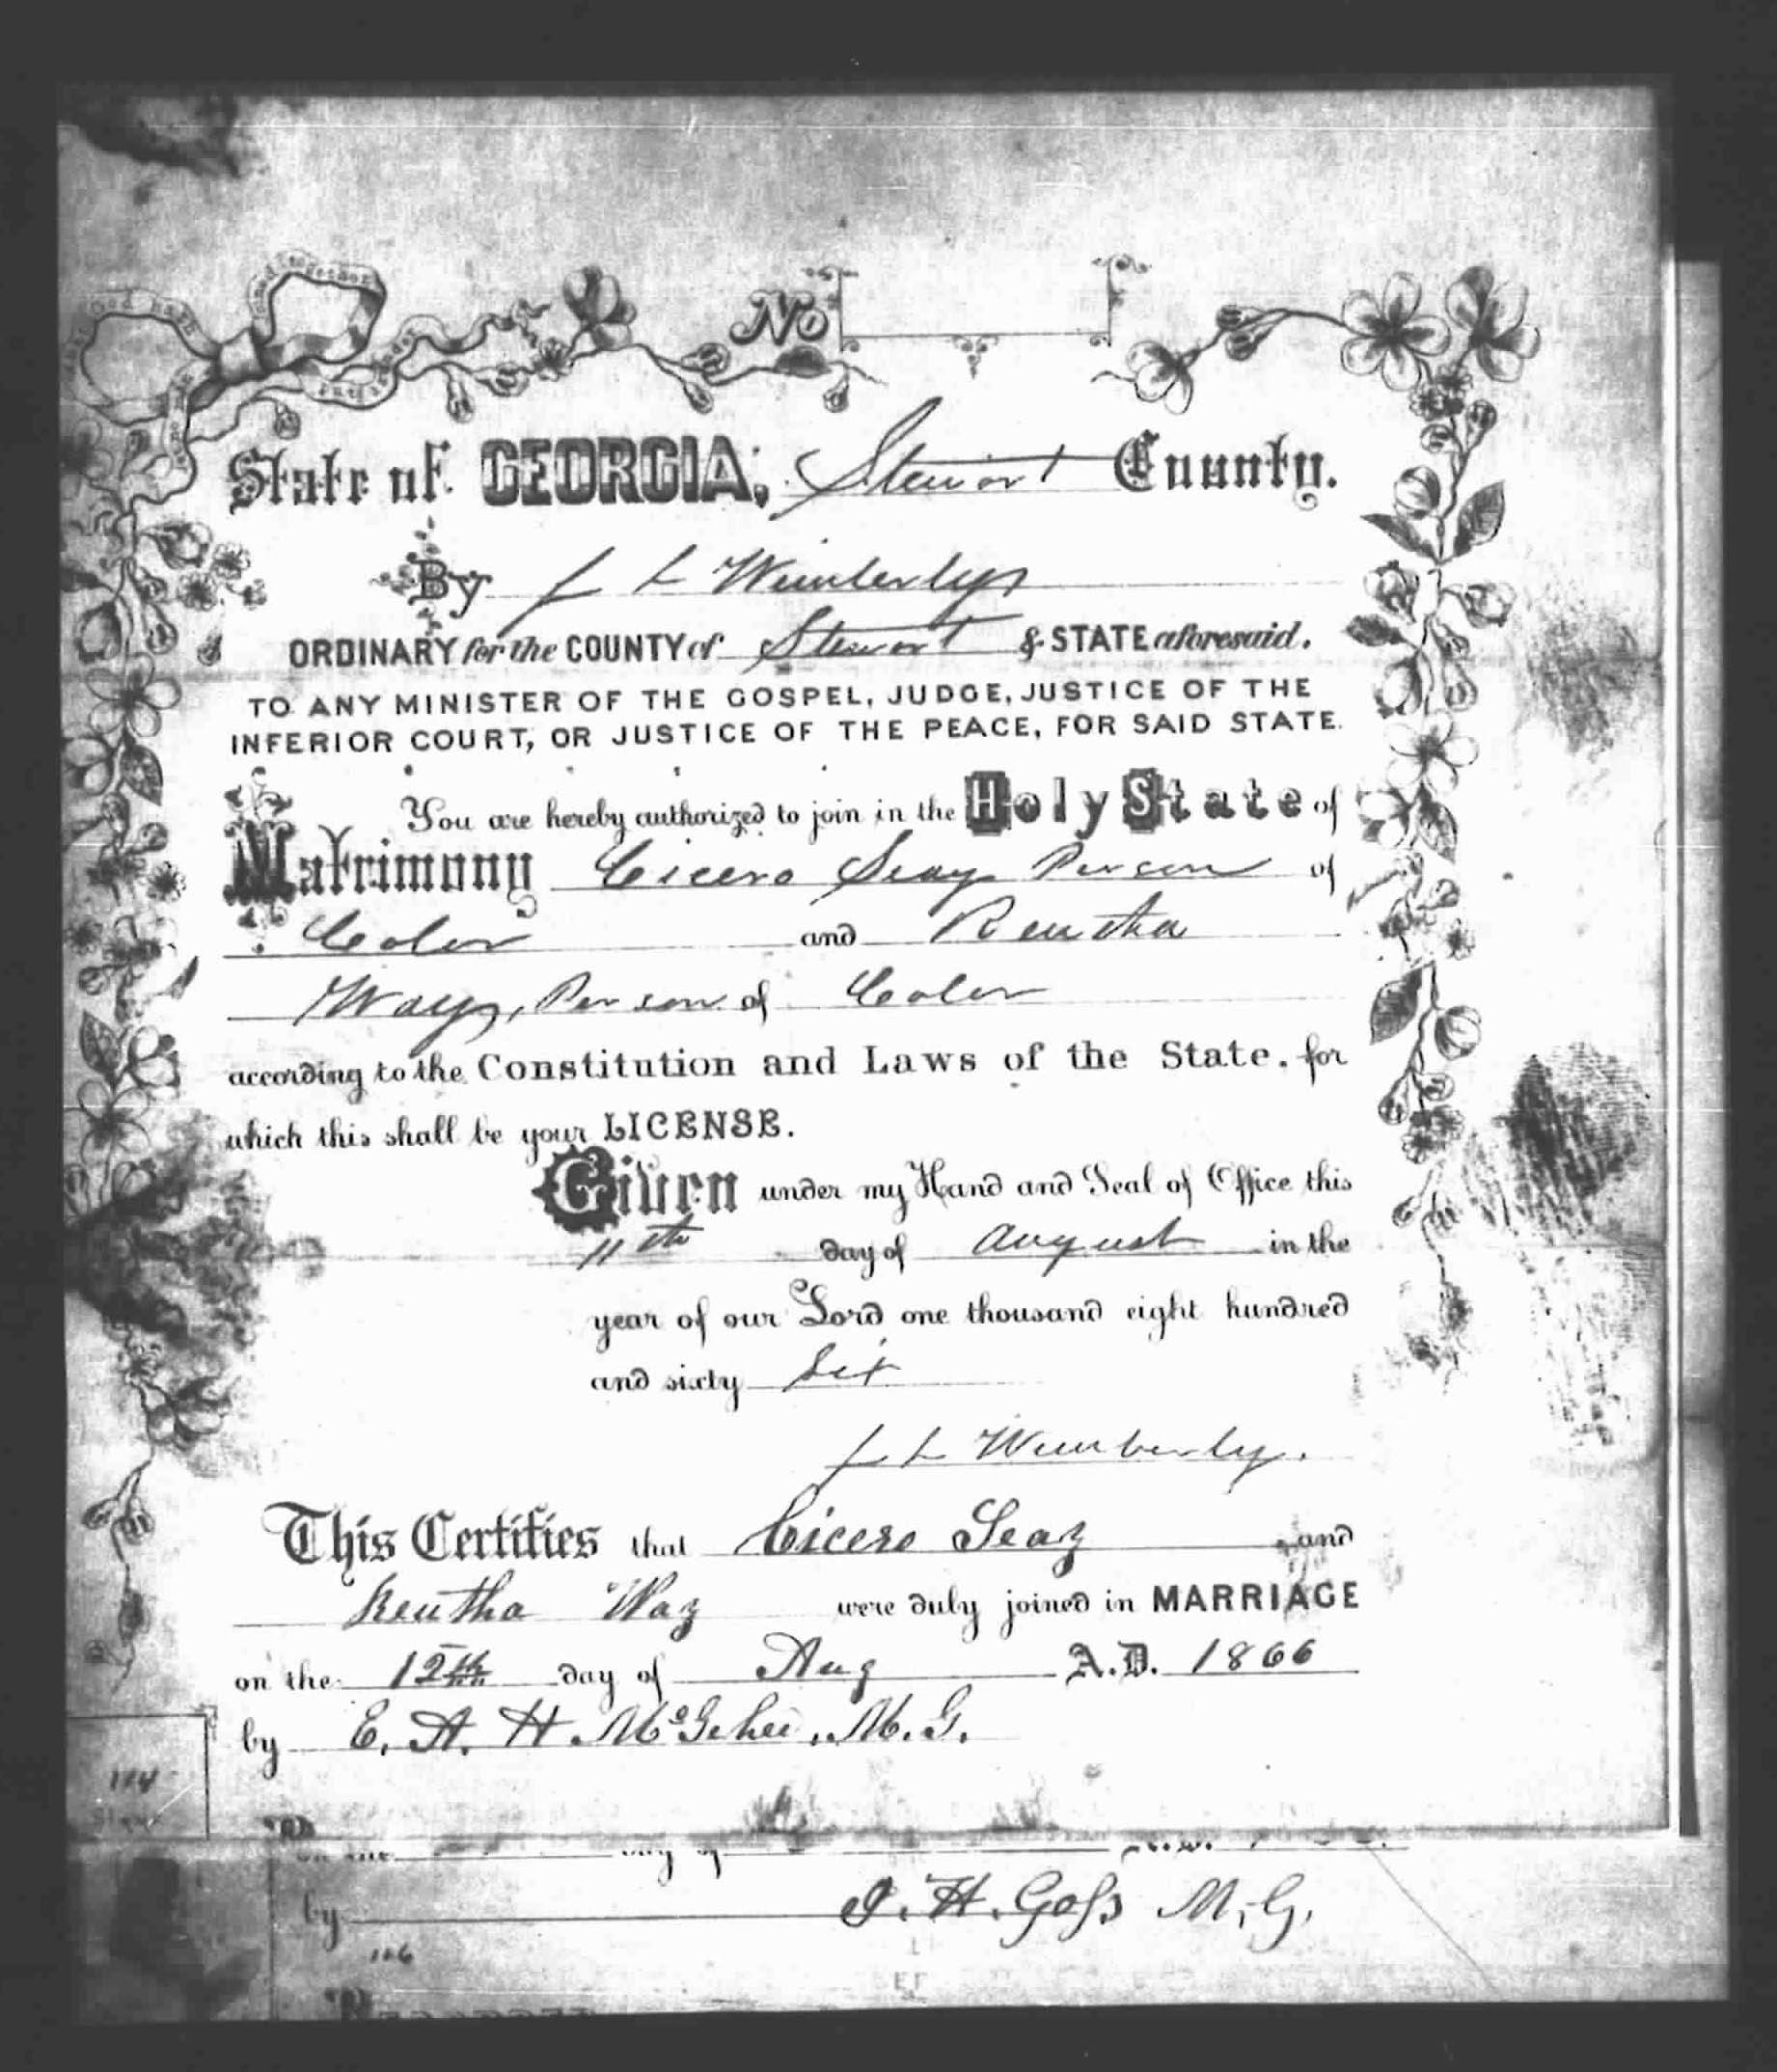 No
State of GEORGIA, Stewart County.
By J L Wimberly
ORDINARY for the COUNTY of Stewart & STATE aforesaid.
TO ANY MINISTER OF THE GOSPEL, JUDGE, JUSTICE OF THE
INFERIOR COURT, OR JUSTICE OF THE PEACE, FOR SAID STATE.
You are hereby authorized to join in the Holy State of
Matrimony Cicero Seay Person of
Color and Reutha
Way, Person of Color
according to the Constitution and Laws of the State, for
which this shall be your LICENSE.
Given under my Hand and Seal of Office this
11th day of August in the
year of our Lord one thousand eight hundred
and sixty Six
J L Wimberly.
This Certifies that Cicero Seay and
Reutha Way were duly joined in MARRIAGE
on the 12th day of Aug A.D. 1866
by E. A. H. McGehee, M. G.
114
day of
by J. H. Goss M. G.
116